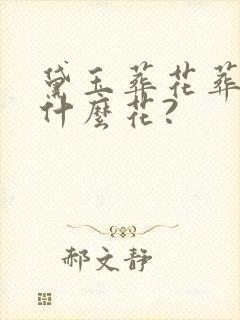 黛玉葬花葬
什麼花？
郝文静